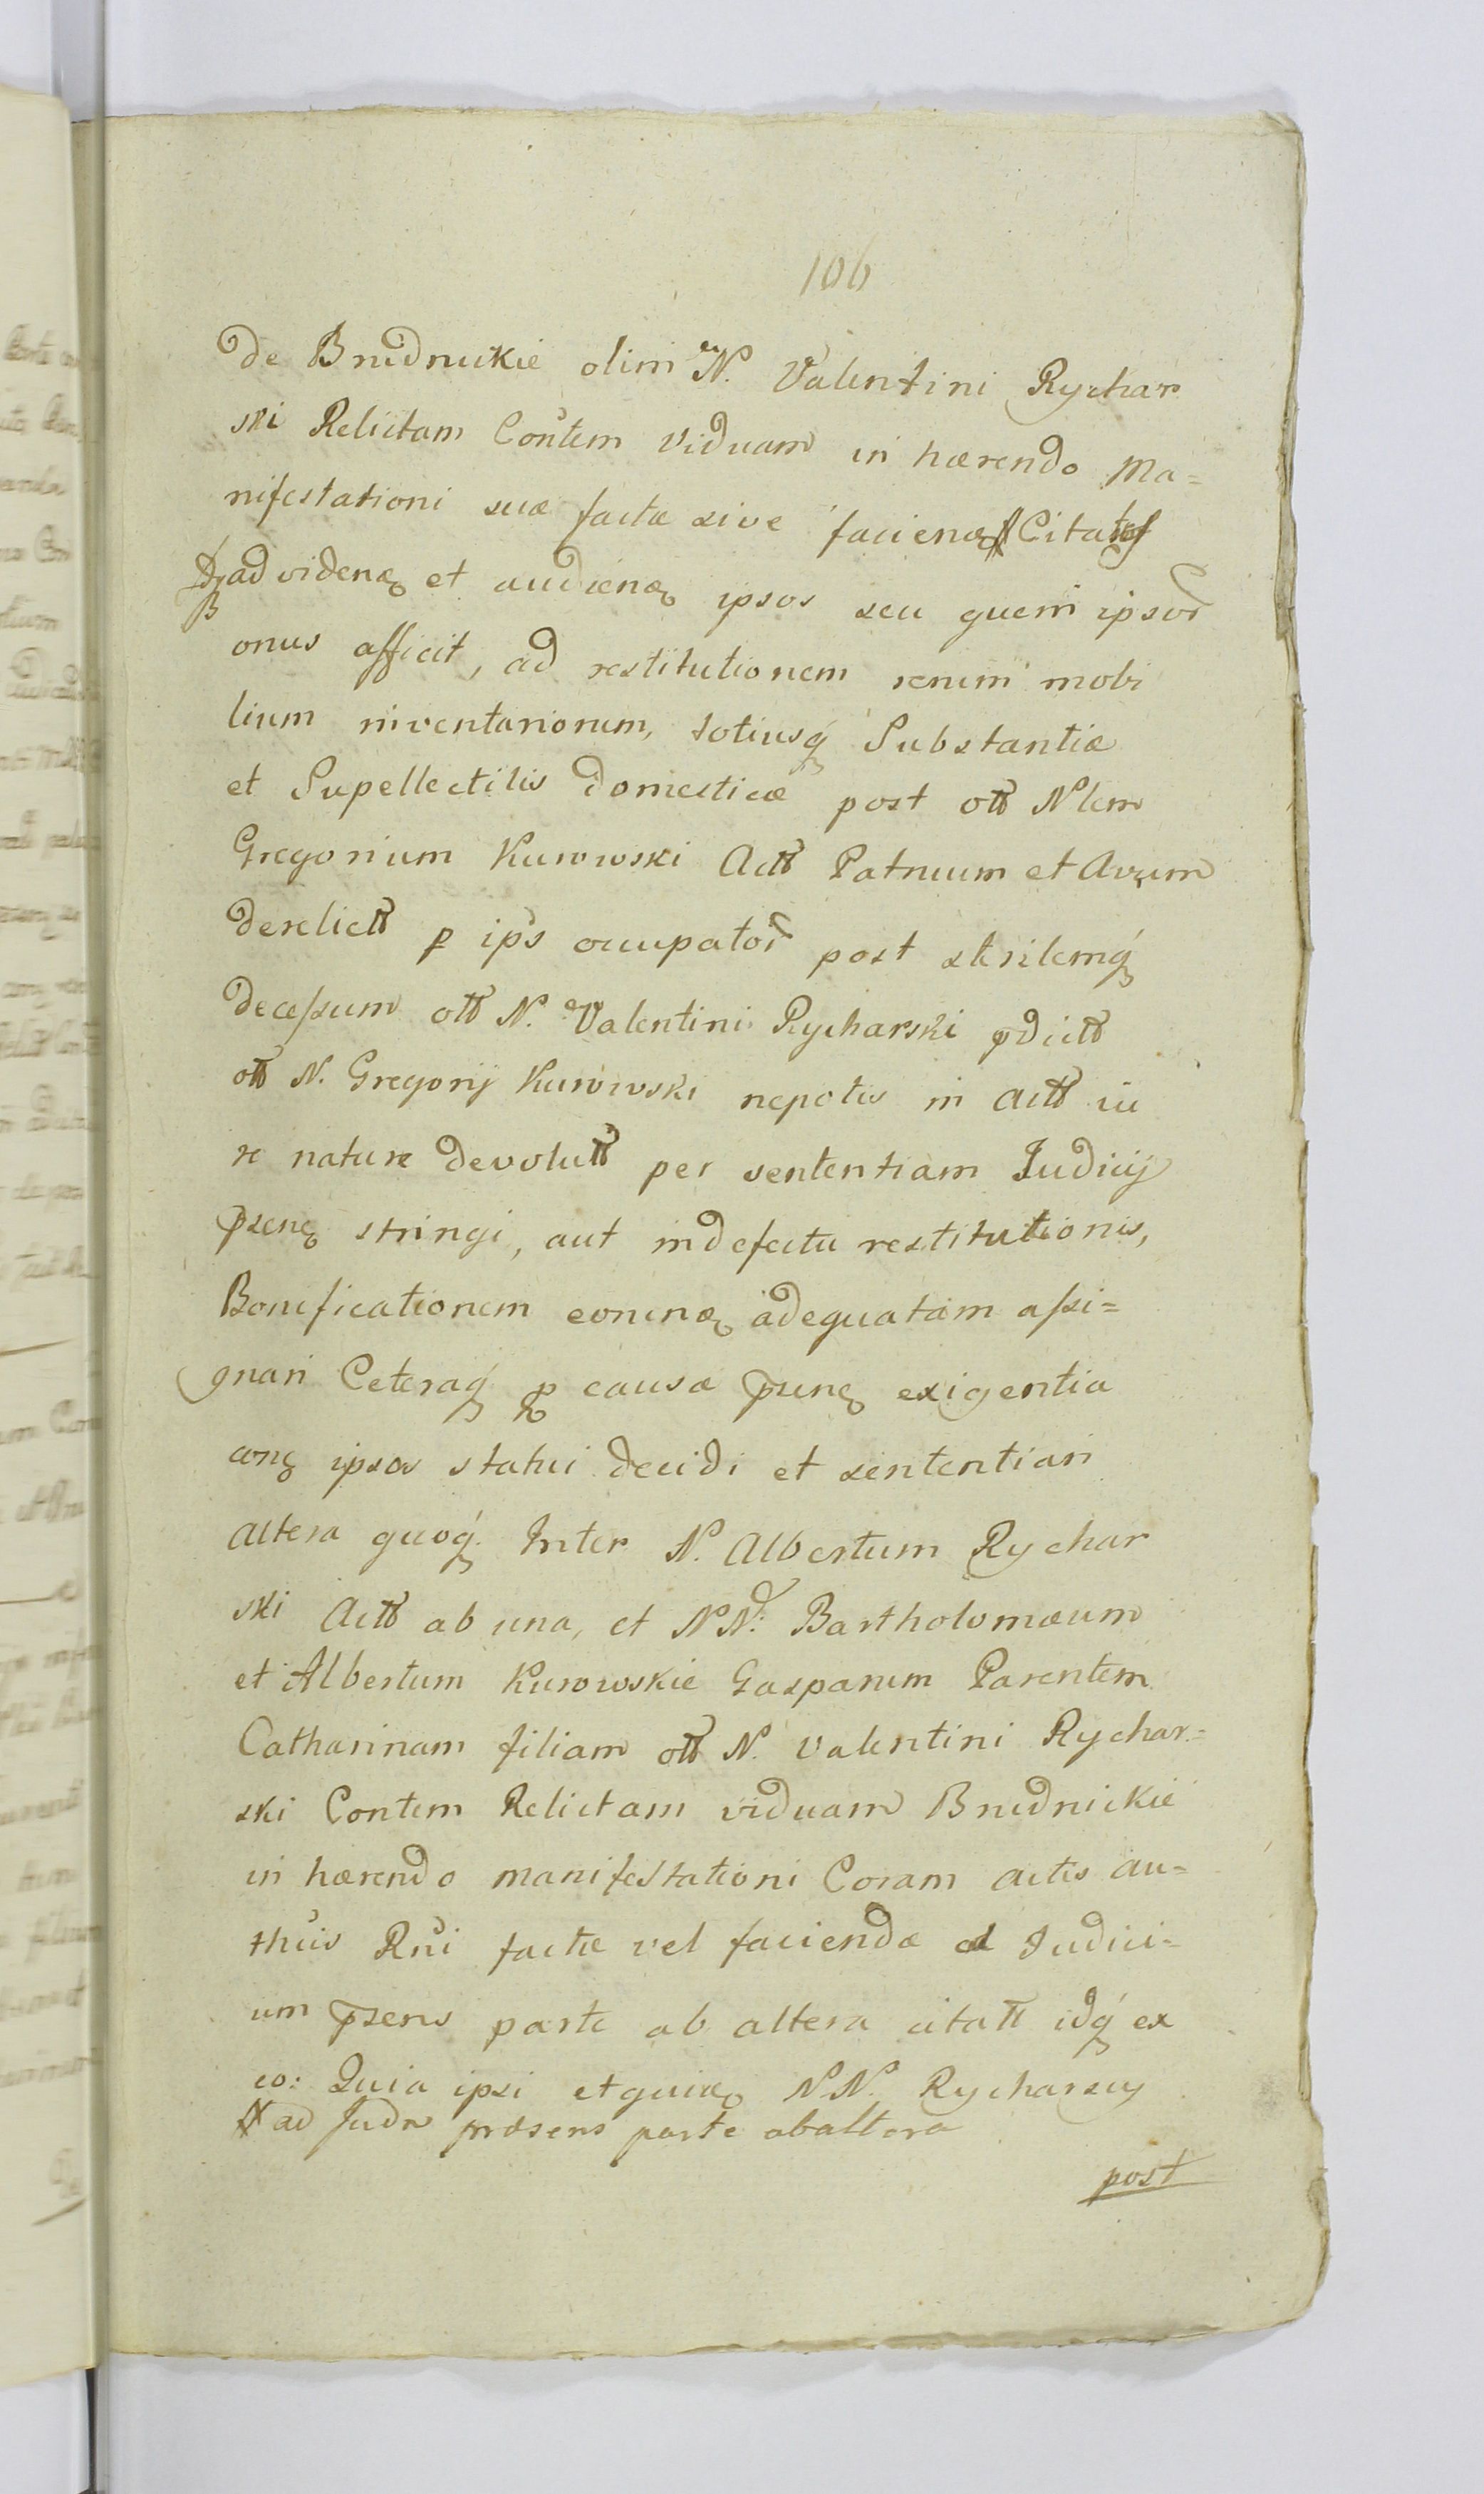 106
de Brudnickie olim N. Valentini Rychar
ski Relictam Contem viduam in hærendo Ma=
nifestationi suæ factæ sive faciendæ Citatos
ad videnđ et audienđ ipsos seu quem ipsor
onus afficit, ad restitutionem rerum mobi
lium inventariorum, totiusq́ Substantiæ
et Supellectilis domesticæ post ołł Nlem
Gregorium Kurowski Actt Patruum et Avum
derelictt p ips occupator post sterilemq́
decessum ołł N. Valentini Rycharski pdictt
ołł N. Gregorij Kurowski nepotis in Actt iu
re nature devolutt per sententiam Judicij
psenꝫ stringi, aut in defectu restitutionis,
Bonificationem eorunđ adequatam assi=
gnari Ceteraq́ p causæ psenꝫ exigentia
conꝫ ipsos statui decidi et sententiari
altera quoq́. Inter N. Albertum Rychar
ski Actt ab una, et NN. Bartholomæum
et Albertum Kurowskie Gasparum Parentem
Catharinam filiam ołł N. Valentini Rychar=
ski Contem Relictam viduam Brudnickie
in hærendo manifestationi Coram actis au=
thcis Rni factæ vel faciendæ ad Judici=
um psens parte ab altera citatt idq́ ex
eo: Quia ipsi et quidꝫ NN. Rycharscy
ad Judm præsens parte ab altera
post